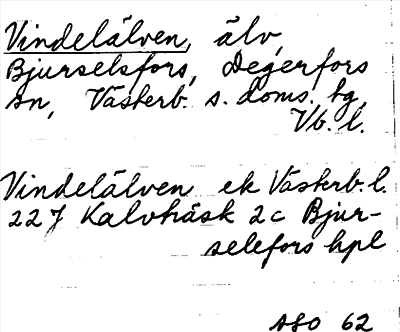 Vindelälven, älv,
Bjurselsfors, Degerfors
sn, Västerb. s. doms. tg,
Vb. l.
Vindelälven ek Västerb. l.
22 J Kalvträsk 2c Bjur-
selefors hpl
SSO 62